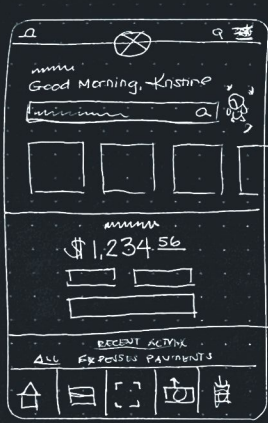 Good Morning, Kristine
$1,234.56
RECENT ACTIVITY
ALL EXPENSES PAYMENTS